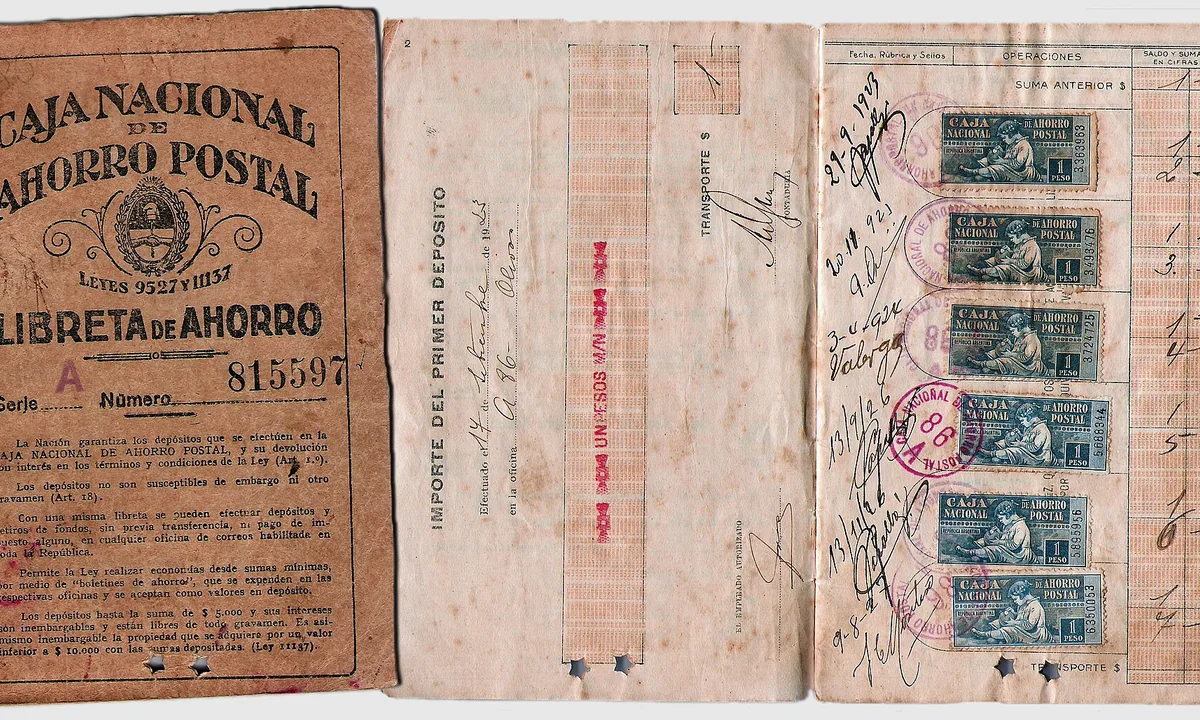 CAJA NACIONAL
DE
AHORRO POSTAL
LEYES 9527 Y 11137
LIBRETA DE AHORRO
A
815597
Serie
Número
La Nación garantiza los depósitos que se efectúen en la
CAJA NACIONAL DE AHORRO POSTAL, y su devolución
con interés en los términos y condiciones de la Ley (Art. 1.º).
Los depósitos no son susceptibles de embargo ni otro
gravamen (Art. 18).
Con una misma libreta se pueden efectuar depósitos y
retiros de fondos, sin previa transferencia, ni pago de im-
puesto alguno, en cualquier oficina de correos habilitada en
toda la República.
Permite la Ley realizar economías desde sumas mínimas,
por medio de "boletines de ahorro", que se expenden en las
respectivas oficinas y se aceptan como valores en depósito.
Los depósitos hasta la suma de $ 5.000 y sus intereses
son inembargables y están libres de todo gravamen. Es así-
mismo inembargable la propiedad que se adquiera por un valor
inferior a $ 10.000 con las sumas depositadas. (Ley 11137).
2
IMPORTE DEL PRIMER DEPOSITO
Efectuado el 17 de Setiembre de 1923
en la oficina A 86 Olivos
UN PESOS M/N
TRANSPORTE $
1
CONTADURIA
EL EMPLEADO AUTORIZADO
Fecha, Rúbrica y Sellos
OPERACIONES
SALDO Y SUMA
EN CIFRAS
SUMA ANTERIOR $
1
29-9-1923
CAJA NACIONAL DE AHORRO POSTAL
REPUBLICA ARGENTINA
1 PESO
3363963
1
2
20 11 923
CAJA NACIONAL DE AHORRO POSTAL
REPUBLICA ARGENTINA
1 PESO
3493476
1
3
3-4-924
Valerga
CAJA NACIONAL DE AHORRO POSTAL
REPUBLICA ARGENTINA
1 PESO
3724725
1
4
13/9/26
CAJA NACIONAL DE AHORRO POSTAL
86
A
CAJA NACIONAL DE AHORRO POSTAL
1 PESO
5688344
1
5
13/11/26
CAJA NACIONAL DE AHORRO POSTAL
REPUBLICA ARGENTINA
1 PESO
5895956
1
6
9-8-
CAJA NACIONAL DE AHORRO POSTAL
REPUBLICA ARGENTINA
1 PESO
6380053
1
7
TRANSPORTE $